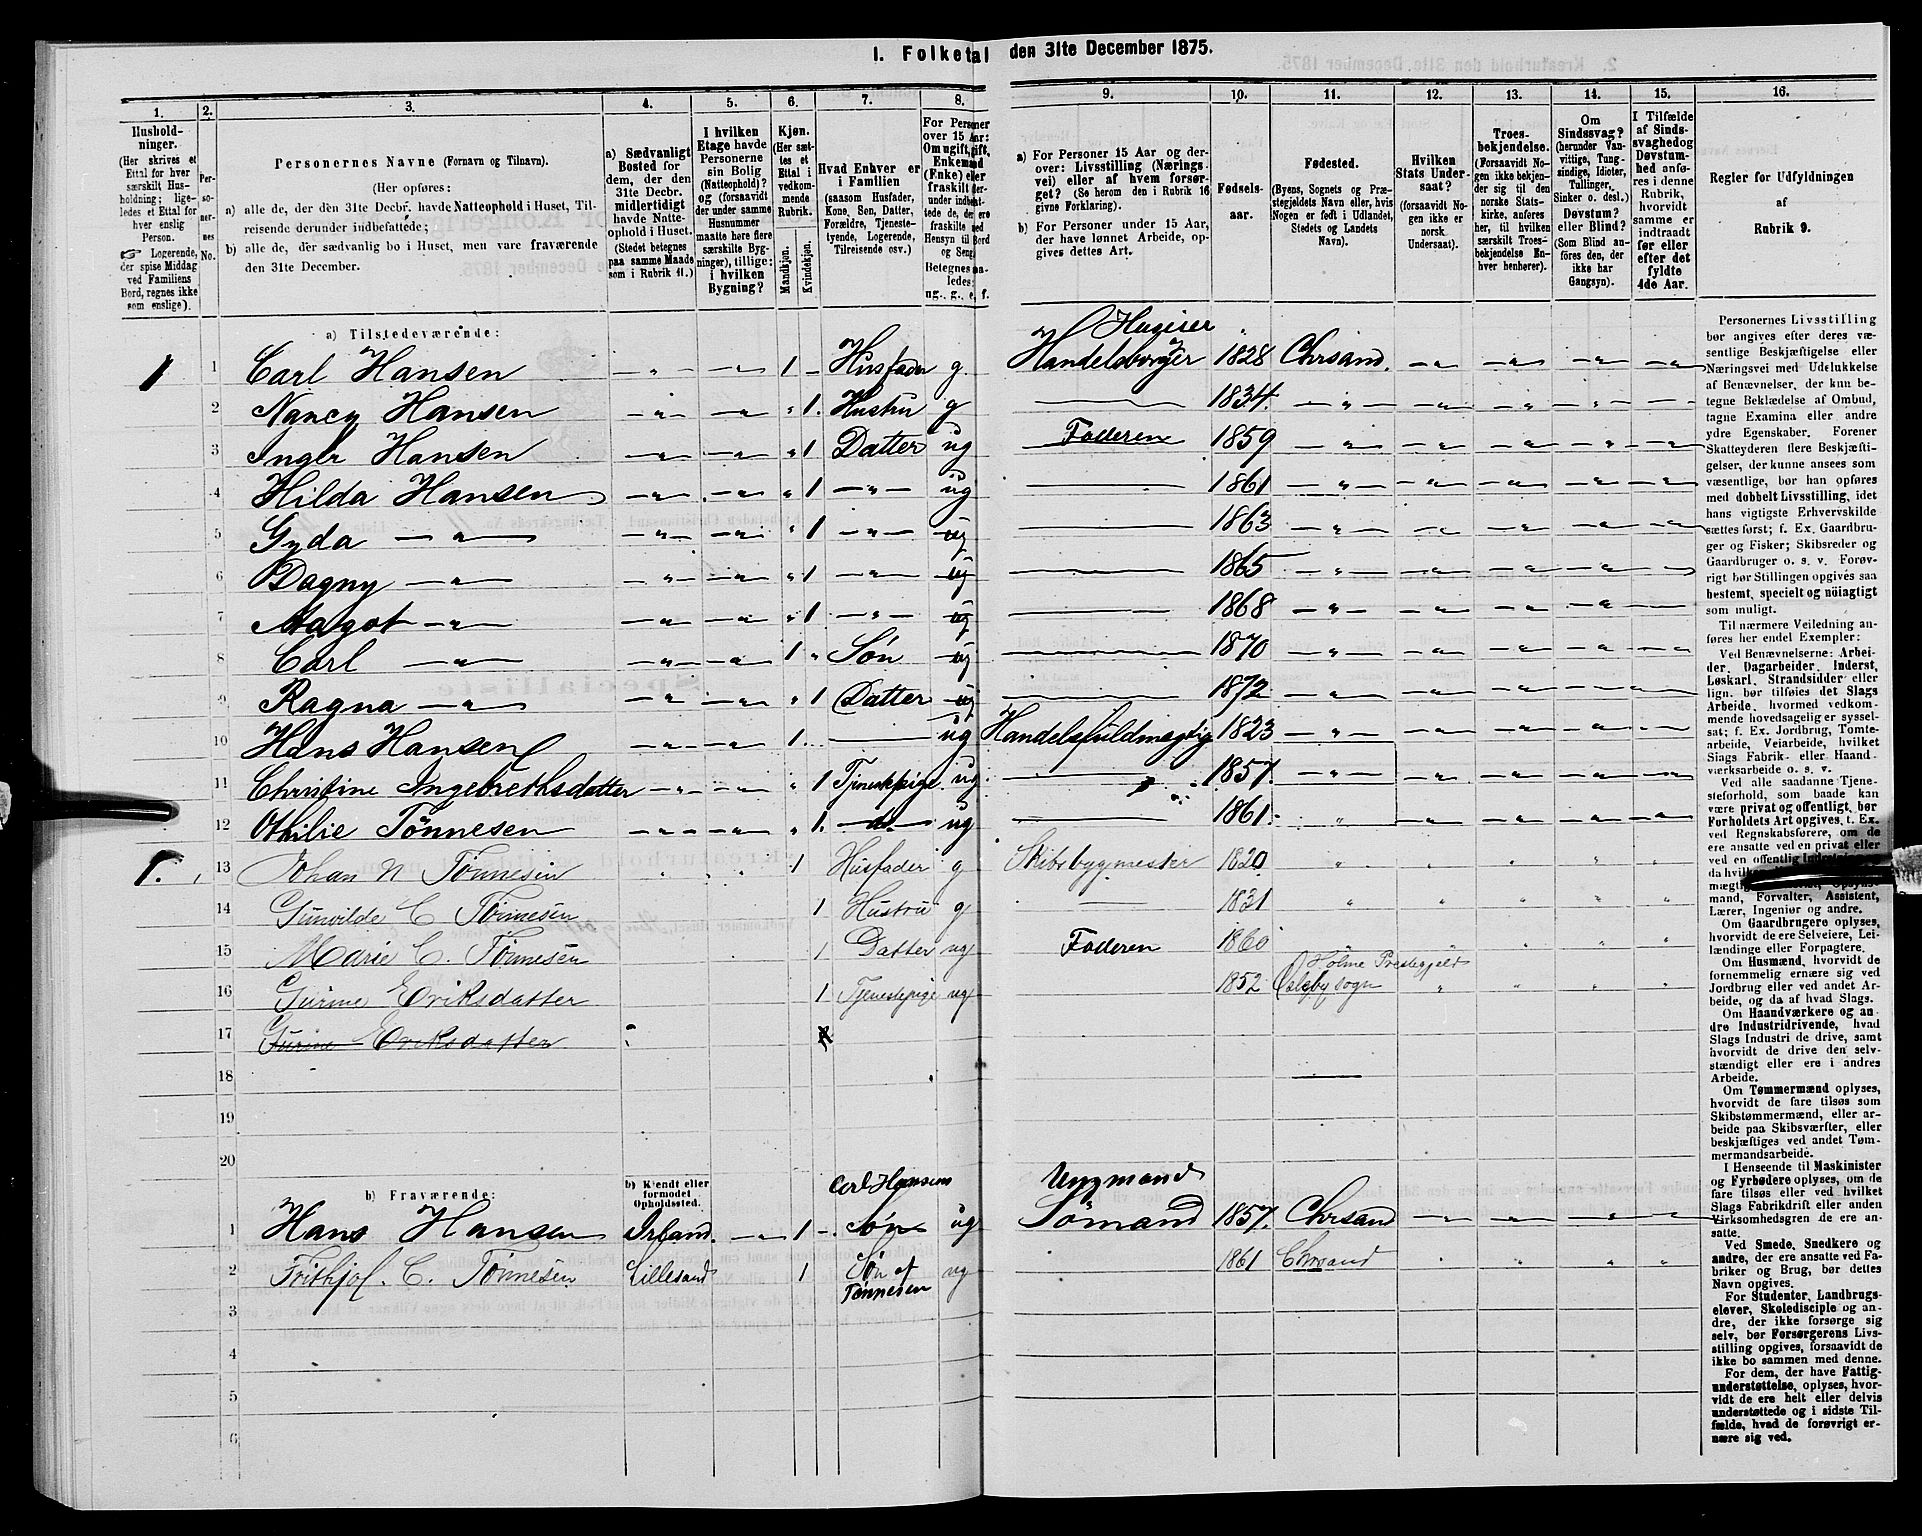 1. Folketal den 31te December 1875.
1. 2. 3. 4. 5. 6. 7. 8. 9. 10. 11. 12. 13. 14. 15. 16.
Hushold-
ninger.
(Her skrives et
Ettal for hver
særskilt Hus-
holdning; lige-
ledes et Ettal for
hver enslig
Person.
Logerende,
der spise Middag
ved Familiens
Bord, regnes ikke
som enslige).
Per-
so-
ner-
nes
No.
Personernes Navne (Fornavn og Tilnavn).
(Her opføres:
a) alle de, der den 31te Decbr. havde Natteophold i Huset, Til-
reisende derunder indbefattede;
b) alle de, der sædvanlig bo i Huset, men vare fraværende
den 31te December.
a) Sædvanligt
Bosted for
dem, der den
31te Decbr.
midlertidigt
havde Natte-
ophold i Huset.
(Stedet betegnes
paa samme Maade
som i Rubrik 11.)
I hvilken
Etage havde
Personerne
sin Bolig
(Natteophold)?
og (forsaavidt
der under samme
Husnummer
maatte høre flere
særskilte Byg-
ninger), tillige:
i hvilken
Bygning?
Kjøn.
(Her sæt-
tes et
Ettal i
vedkom-
mende
Rubrik.
Mandkjøn.
Kvindekjøn.
Hvad Enhver er
i Familien
(saasom Husfader,
Kone, Søn, Datter,
Forældre, Tjeneste-
tyende, Logerende,
Tilreisende osv.)
For Personer
over 15 Aar:
Om ugift, gift,
Enkemand
(Enke) eller
fraskilt
Hensyn til Bord
og Seng.
ug., g., e, f.
a) For Personer 15 Aar og der-
over: Livsstilling (Nærings-
vei) eller af hvem forsør-
get? (Se herom den i Rubrik 16
givne Forklaring).
b) For Personer under 15 Aar,
der have lønnet Arbeide, op-
gives dettes Art.
Fødsels-
aar.
Fødested.
(Byens, Sognets og Præ-
stegjeldets Navn eller, hvis
Nogen er født i Udlandet,
Stedets og Landets
Navn).
Hvilken
Stats Under-
saat?
(forsaavidt No-
gen ikke er
norsk
Undersaat).
Troes-
bekjendelse.
(Forsaavidt No-
gen ikke bekjen-
der sig til den
norske Stats-
kirke, anføres
her, til hvilken
særskilt Troes-
bekjendelse En-
hver henhører).
Om
Sindssvag?
(herunder Van-
vittige, Tung-
sindige, Idioter,
Tullinger,
Sinker o. desl.)
Døvstum?
eller Blind?
(Som Blind an-
føres den, der
ikke har
Gangsyn).
I Tilfælde
af Sinds-
svaghed og
Døvstum-
hed anfø-
res i denne
Rubrik,
hvorvidt
samme er
indtraadt
før eller
efter det
fyldte
4de Aar.
Regler for Udfyldningen
af
Rubrik 9.
a) Tilstedeværende:
1 1 Carl Hansen 1 Husfader g. Handelsborger 1828 Chrsand.
2 Nancy Hansen 1 Hustru g 1834.
3 Inger Hansen 1 Datter ug Faderen 1859
4 Hilda Hansen 1 ug 1861
5 Gyda 1 ug 1863
6 Dagny 1 ug 1865
7 Magot 1 ug 1868
8 Carl 1 Søn ug 1870
9 Ragna 1 Datter ug 1872
10 Hans Hansen 1 ug Handelsfuldmægtig 1823
11 Christine Ingebrethsdatter 1 Tjenestepige ug 1857.
12 Othilie Tönnesen 1 do ug 1861
1. 13 Johan N Tönnesen 1 Husfader g Skibsbygmester 1820
14 Gunvilde C Tönnesen 1 Hustru g 1831
15 Marie C. Tönnesen 1 Datter ug Faderen 1860
Holme Prestegjeld
16 Gurine Eriksdatter 1 Tjenestepige ug 1852 Øslebysogn
17 Gurine Eriksdatter
18
19
20
b) Fraværende:
b) Kjendt eller
formodet
Opholdssted.
Carl Hansens Ungmand
1 Hans Hansen Irland. 1 Søn ug Sömand 1857. Chrsand
2 Frithjof. C. Tönnesen Lillesand 1 Søn af Tönnesen ug 1861 Chrsand
3
4
5
6
Personernes Livsstilling
bør angives efter deres væ-
sentlige Beskjæftigelse eller
Næringsvei med Udelukkelse
af Benævnelser, der kun be-
tegne Beklædelse af Ombud,
tagne Examina eller andre
ydre Egenskaber. Forener
Skatteyderen flere Beskjæfti-
gelser, der kunne ansees som
væsentlige, bør han opføres
med dobbelt Livsstilling, idet
hans vigtigste Erhvervskilde
sættes først; f. Ex. Gaardbru-
ger og Fisker; Skibsreder og
Gaardbruger o. s. v. Forøv-
rigt bør Stillingen opgives saa
bestemt, specielt og nöiagtigt
som muligt.
Til nærmere Veiledning an-
føres her endel Exempler:
Ved Benævnelserne: Arbei-
der, Dagarbeider, Inderst,
Løskarl, Strandsidder eller
lign. bør tilføies det Slags
Arbeide, hvormed vedkom-
mende hovedsagelig er syssel-
sat; f. Ex. Jordbrug, Tomte-
arbeide, Veiarbeide, hvilket
Slags Fabrik- eller Haand-
værksarbeide o. s. v.
Ved alle saadanne Tjene-
steforhold, som baade kan
være privat og offentligt, bør
Forholdets Art opgives, t. Ex.
ved Regnskabsførere, om de
ere ansatte ved en privat eller
ved en offentlig
mand, Forvalter, Assistent,
Lærer, Ingeniør og andre.
Om Gaardbrugere oplyses,
hvorvidt de ere Selveiere, Lei-
lændinge eller Forpagtere.
Om Husmænd, hvorvidt de
fornemmelig ernære sig ved
Jordbrug eller ved andet Ar-
beide, og da af hvad Slags.
Om Haandværkere og an-
dre Industridrivende, hvad
Slags Industri de drive, samt
hvorvidt de drive den selv-
stændigt eller ere i andres
Arbeide.
Om Tømmermænd oplyses,
hvorvidt de fare tilsøs som
Skibstømmermænd, eller ar-
beide paa Skibsværfter, eller
beskjæftiges ved andet Tøm-
mermandsarbeide.
I Henseende til Maskinister
og Fyrbødere oplyses, om de
fare tilsøs eller ved hvilket
Slags Fabrikdrift eller anden
Virksomhedsgren de ere an-
satte.
Ved Smede, Snedkere og
andre, der ere ansatte ved Fa-
briker og Brug, bør dettes
Navn opgives.
For Studenter, Landbrugs-
elever, Skoledisciple og an-
dre, der ikke forsørge sig
selv, bør Forsørgerens Livs-
stilling opgives, forsaavidt de
ikke bo sammen med denne.
For dem, der have Fattig-
understøttelse, oplyses, hvor-
vidt de ere helt eller delvis
understøttede og i sidste Til-
fælde, hvad de forøvrigt er-
nære sig ved.